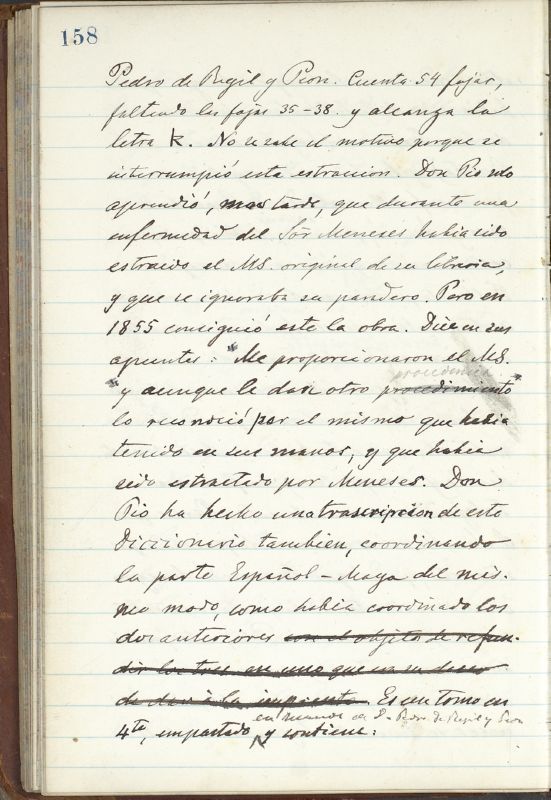 158
Pedro de Regil y Peon. Cuenta 54 fojas,
faltando las fojas 35-38. y alcanza la
letra K. No se sabe el motivo porque se
interrumpió esta estraccion. Don Pio solo
aprendió, mas tarde, que durante una
enfermedad del Sõr Meneses habia sido
estraido el MS. original de su libreria,
y que se ignoraba su paradero. Pero en
1855 consiguió este la obra. Dice en sus
apuntes: "Me proporcionaron el MS.
procedencia
"y aunque le dan otro procedimiento"
lo reconoció por el mismo que habia
tenido en sus manos, y que habia
sido estractado por Meneses. Don
Pio ha hecho una trascripcion de este
Diccionario tambien, coordinando
la parte Español-Maya del mis-
mo modo, como habia coordinado los
dos anteriores con el objeto de refun-
dir los tres en uno que
de dar à la imprenta. Es un tomo en
en manos de D. Pedro de Regil y Peon
4to, empastado y contiene: